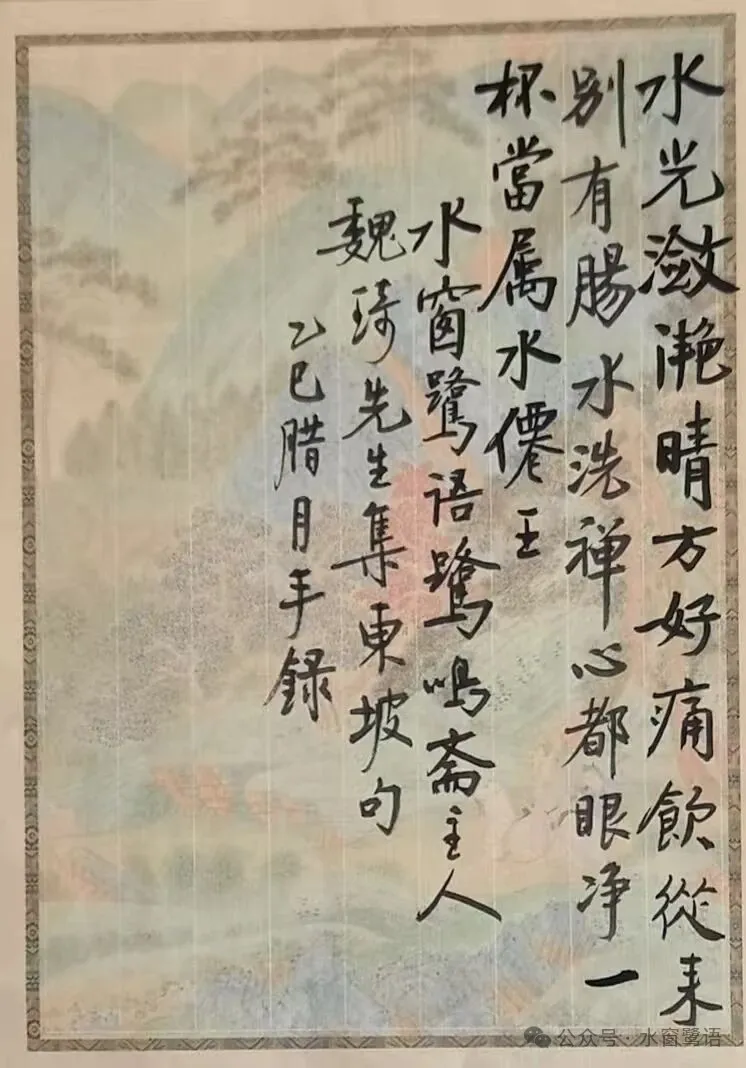 水光潋滟晴方好痛飲從来
别有腸水洗禅心都眼净一
杯當属水僊王
水窗鷺语鷺鸣斋主人
魏琦先生集東坡句
乙巳腊月手録
公众号·水窗鹭语